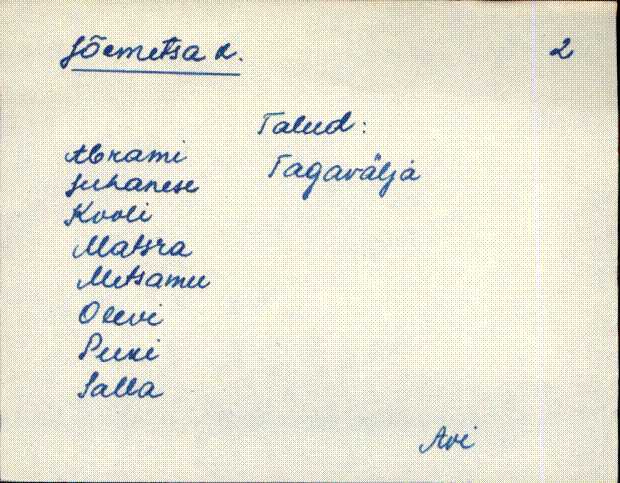 Jõemetsa k. 2
Talud:
Abrami
Juhanese
Kooli
Matsra
Metsamu
Olevi
Salla
Tagaväljá
Avi